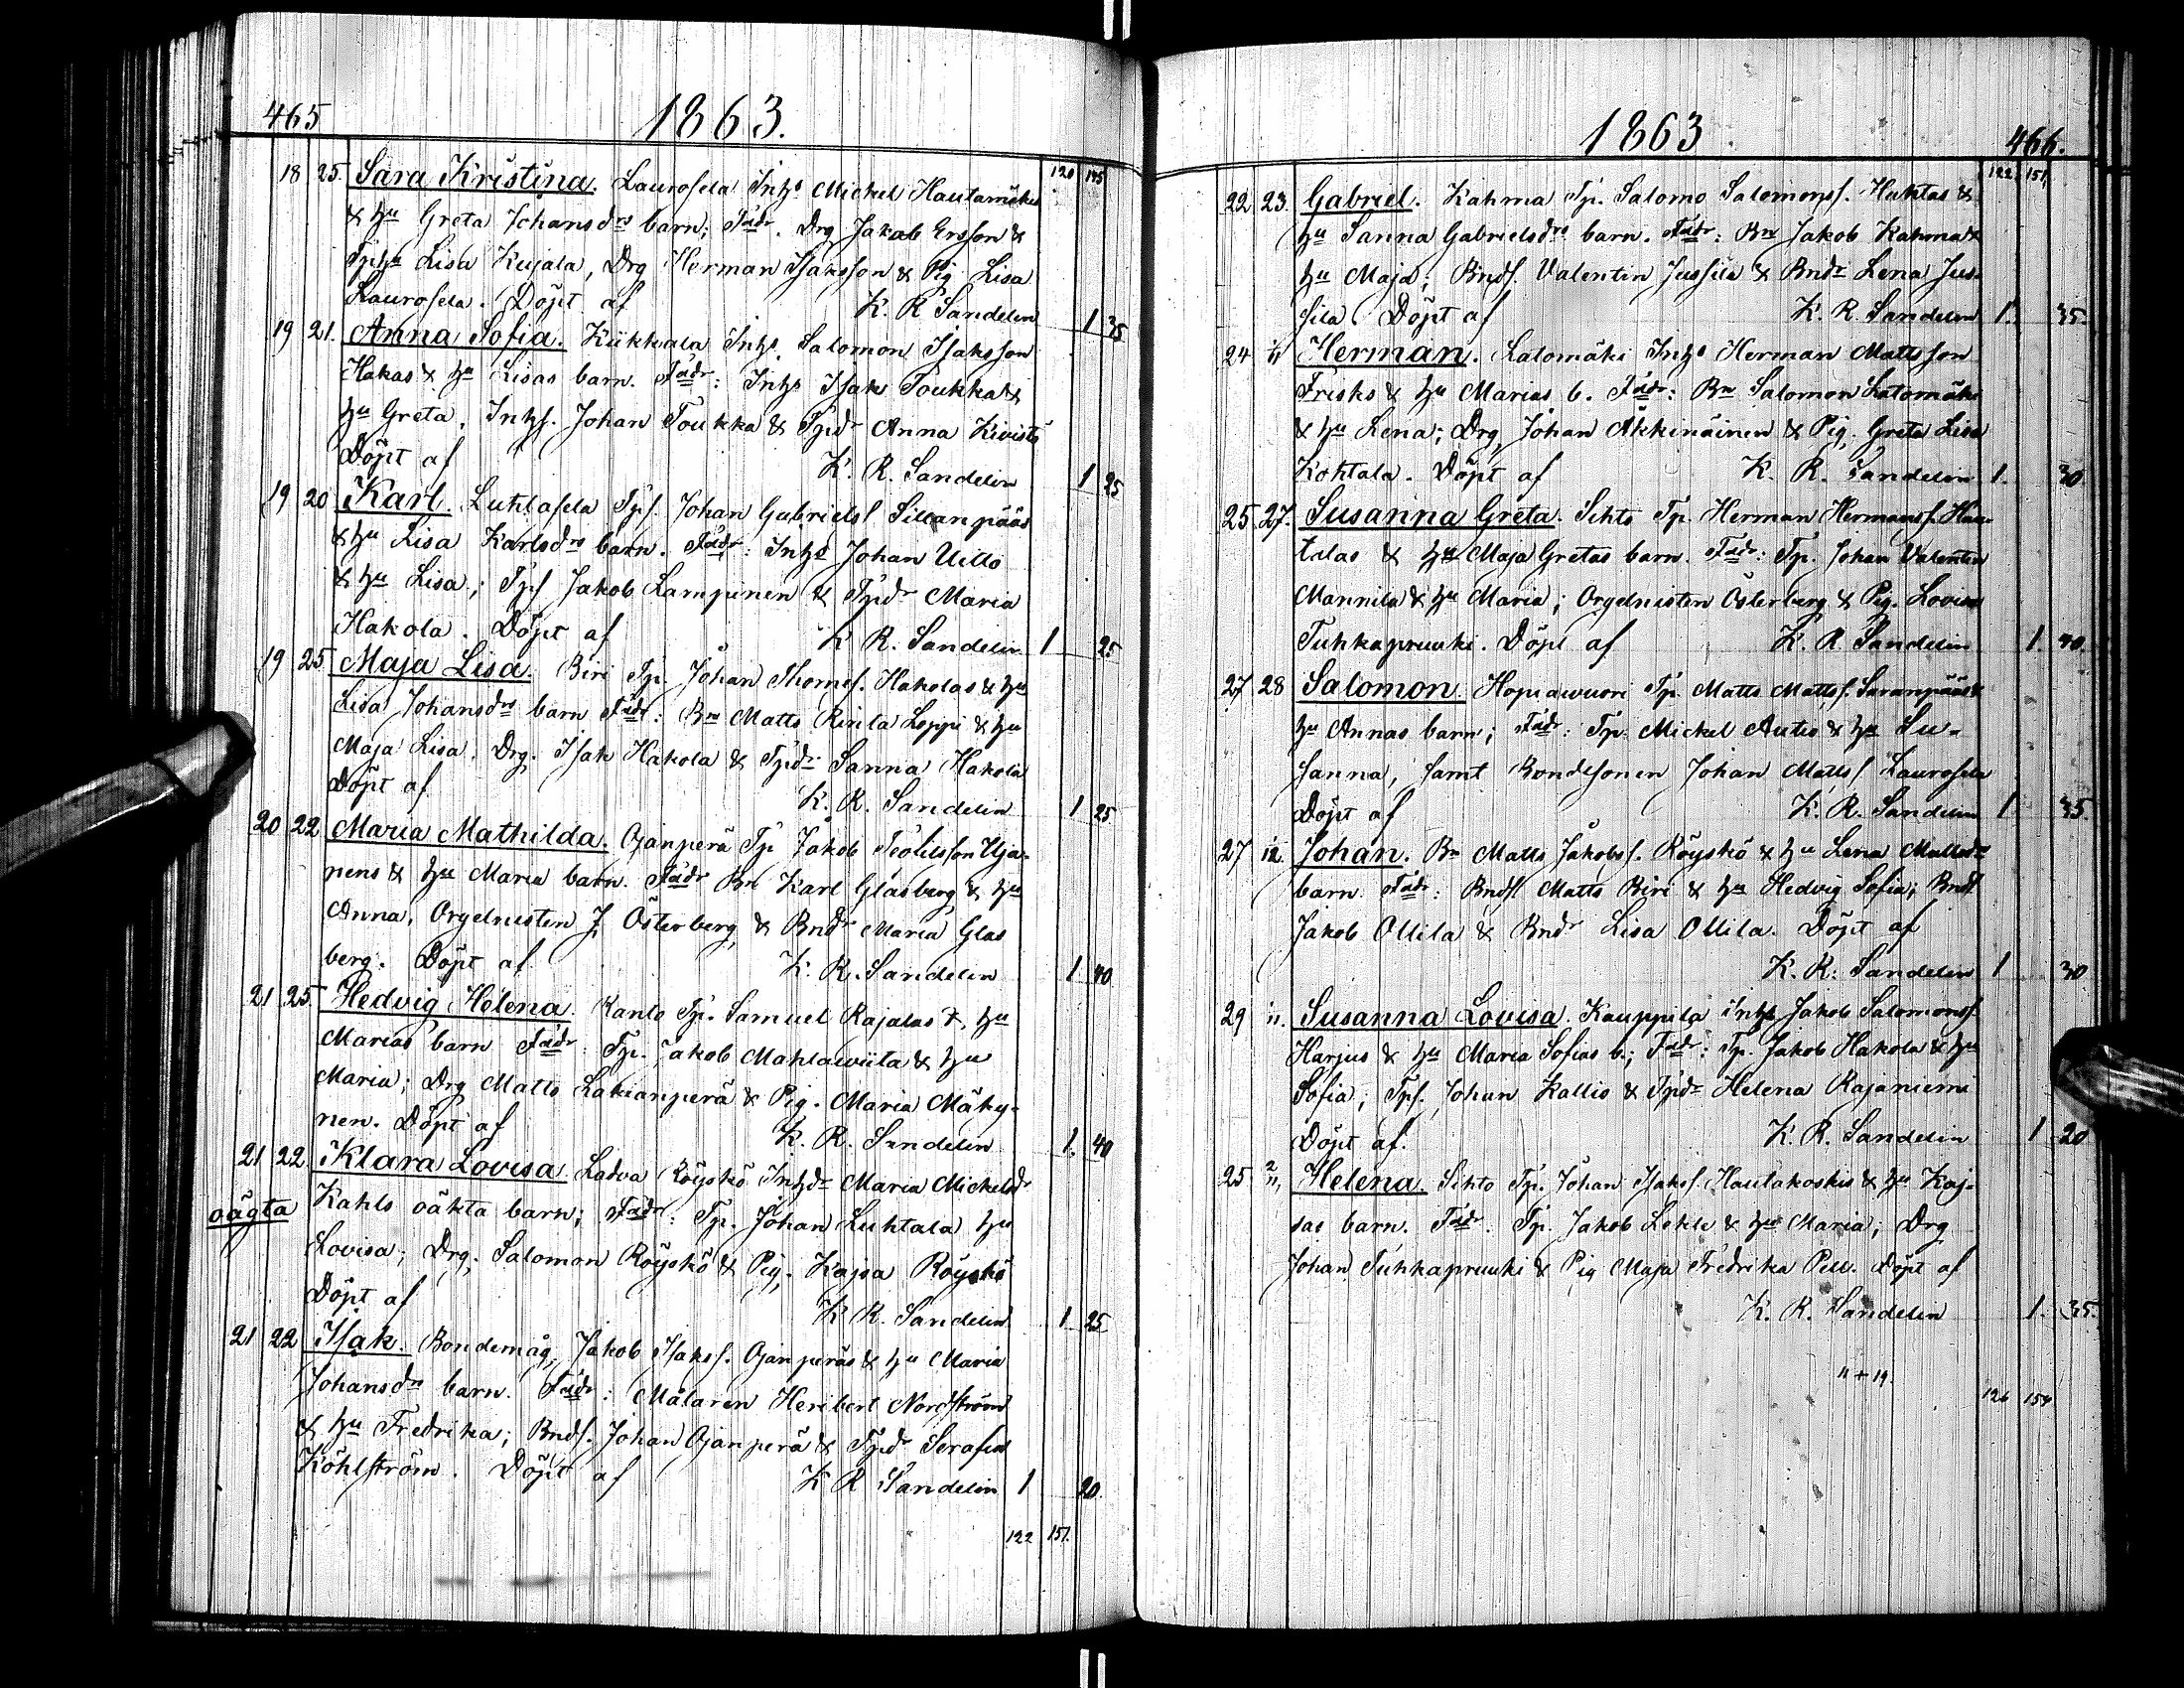 465
1863.
120 145
18 25. Sara Kristina. Laurosela Inhs Michel Hautamäkis
& hu Greta Johansdrs barn; Fadr. Drg Jakob Ersson &
Tphu Lisa Kujala, Drg Herman Isaksson & Pig Lisa
Laurosela. Döpt af K. R Sandelin 1 35
19 21. Anna Sofia. Kükkala Inhs. Salomon Isaksson
Hakas & hu Lisas barn. Fadr: Inhs Isak Toukka &
hu Greta, Inhs. Johan Toukka & Tpdr Anna Kivistö
Döpt af K. R. Sandelin 1 25
19 20 Karl. Luhlasela Tps. Johan Gabriels Sillanpääs
& hu Lisa Karlsdrs barn. Fadr: Inhs Johan Uitto
& hu Lisa; Tps Jakob Lampinen & Tpdr Maria
Hakola. Döpt af K R. Sandelin 1 25
19 25 Maja Lisa. Biri Tp. Johan Thomes. Hakolas & hu
Lisa Johansdrs barn Fadr: Bn Matts Rinla Leppi & hu
Maja Lisa, Drg. Isak Hakola & Tpdr Sanna Hakola
Döpt af K. R. Sandelin 1 25
20 22 Maria Mathilda. Ojanperä Tp Jakob Teofilsson Uja-
nens & hu Maria barn. Fadr Bn Karl Glasberg & hu
Anna, Orgelnisten J. Österberg & Bndr Maria Glas
berg. Döpt af K. R. Sandelin 1 40
21 25. Hedvig Helena. Kanto Tp. Samuel Rajalas &, hu
Marias barn Fadr: Tp. Jakob Mahlawiita & hu
Maria; Drg Matts Lakianperä & Pig. Maria Mäky-
nen. Döpt af K. R. Sandelin 1. 40
21 22 Klara Lovisa. Ladva Röyskö Inhdr Maria Mickelsdr
oägta Kahls oäkta barn; Fadr: Tp. Johan Luhtala hu
Lovisa; Drg. Salomon Röyskö & Pig. Kajsa Röyskö
Döpt af K R. Sandelin 1 25
21 22 Isak. Bondemåg, Jakob Isakss. Ojanperäs & hu Maria
Johansdrs barn. Fadr: Målaren Heribert Nordström
& hu Fredrika; Bnds. Johan Ojanperä & Tpdr Serafia
Köhlström. Döpt af K R Sandelin 1 20.
122 151.
1863
466.
122 151
22 23. Gabriel. Kahma Tp. Salomo Salomonss. Huhtas &
hu Sanna Gabrielsdrs barn. Fadr: Bn Jakob Kahma &
hu Maja; Bnds. Valentin Jussila & Bndr Lena Jus-
sila. Döpt af K. R. Sandelin 1. 35.
24 1/11 Herman. Latomäki Inhs Herman Mattsson
Frisks & hu Marias b. Fadr: Bn Salomon Latomäki
& hu Lena; Drg Johan Äkkinäinen & Pig. Greta Lisa
Kohtala. Döpt af K. R. Sandelin 1. 30
25 27. Susanna Greta. Sihto Tp. Herman Hermanss. Hau-
talas & hu Maja Gretas barn. Fadr: Tp. Johan Valentin
Mannila & hu Maria; Orgelnisten Österberg & Pig. Lovisa
Tuhkapruuki. Döpt af K. R. Sandelin 1. 40.
27 28 Salomon. Hopiawuori Tp. Matts Mattss. Saranpääs &
hu Annas barn; Fadr: Tp. Mickel Autio & hu Su-
sanna, samt Bondesonen Johan Mattss Laurosela
Döpt af K. R. Sandelin 1 35.
27 Johan. Bn Matts Jakobs. Röyskö & hu Lena Mattsdrs
barn Fadr: Bnds Matts Biri & hu Hedvig Sofia; Bnds
Jakob Ollila & Bndr Lisa Ollila. Döpt af
K. R. Sandelin 1 30
29 Susanna Lovisa. Kauppila Inhs Jakob Salomonss
Harjus & hu Maria Sofias b.; Fadr: Tp. Jakob Hakola & hu
Sofia; Tps. Johan Kallio & Tpdr Helena Rajaniemi
Döpt af. K. R. Sandelin 1 20
25 2/11 Helena. Sihto Tp. Johan Isakss. Hautakoskis & hu Kaj-
sas barn. Fadr. Tp. Jakob Lekle & hu Maria; Drg
Johan Tuhkapruuki & Pig Maja Fredrika Pell. Döpt af
K. R. Sandelin 1. 35.
11 + 19.
126 154